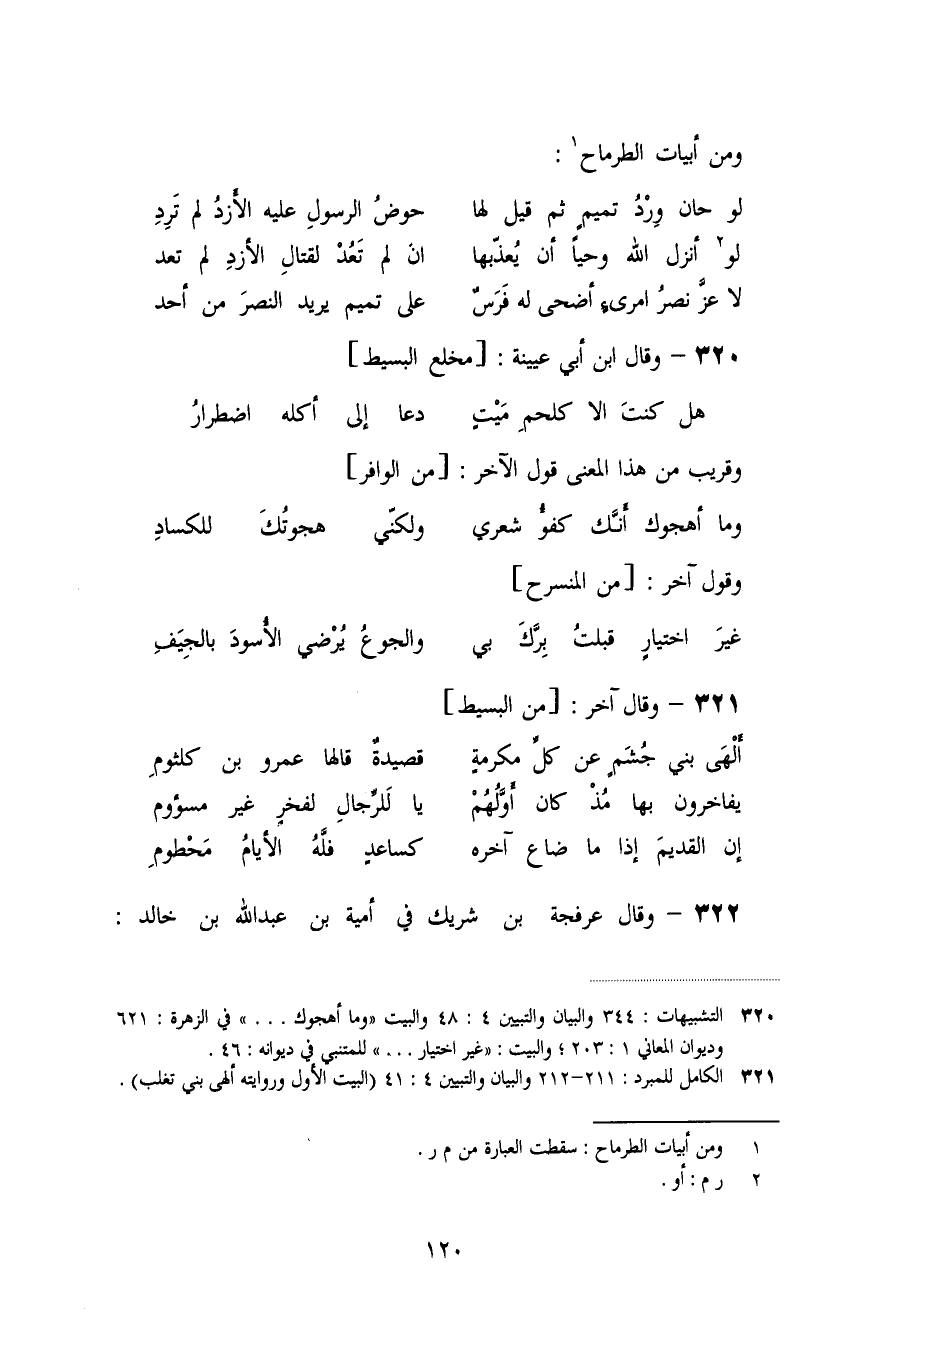 ومن أبيات الطرماح١ :
لو حان وِرْدُ تميمٍ ثم قيل لها حوضُ الرسولِ عليه الأَزدُ لم تَرِدِ
لو٢ أنزل الله وحياً أن يُعذّبها انَ لم تَعُدْ لقتالِ الأزدِ لم تعد
لا عزَّ نصرُ امرىءٍ أضحى له فَرَسٌ على تميم يريد النصرَ من أحد
٣٢٠ – وقال ابن أبي عيينة : [مخلع البسيط]
هل كنتَ الا كلحمِ مَيْتٍ دعا إلى أكله اضطرارُ
وقريب من هذا المعنى قول الآخر : [من الوافر]
وما أهجوك أَنَّك كفوُّ شعري ولكنّي هجوتُكَ للكسادِ
وقول آخر : [من المنسرح]
غيرَ اختيارٍ قبلتُ بِرَّكَ بي والجوعُ يُرْضي الأُسودَ بالجِيَفِ
٣٢١ – وقال آخر : [من البسيط]
أَلْهَى بني جُشَمٍ عن كلِّ مكرمةٍ قصيدةٌ قالها عمرو بن كلثومِ
يفاخرون بها مُذْ كان أَوَّلُهُمْ يا لَلرِّجالِ لفخرٍ غير مسؤوم
إن القديمَ إذا ما ضاع آخره كساعدٍ فلَّهُ الأيامُ مَحْطومِ
٣٢٢ – وقال عرفجة بن شريك في أمية بن عبدالله بن خالد :
٣٢٠ التشبيهات : ٣٤٤ والبيان والتبيين ٤ : ٤٨ والبيت «وما أهجوك . . . » في الزهرة : ٦٢١
وديوان المعاني ١ : ٢٠٣ ؛ والبيت : «غير اختيار . . . » للمتنبي في ديوانه : ٤٦ .
٣٢١ الكامل للمبرد : ٢١١–٢١٢ والبيان والتبيين ٤ : ٤١ (البيت الأول وروايته ألهى بني تغلب) .
١ ومن أبيات الطرماح : سقطت العبارة من م ر .
٢ ر م : أو .
١٢٠